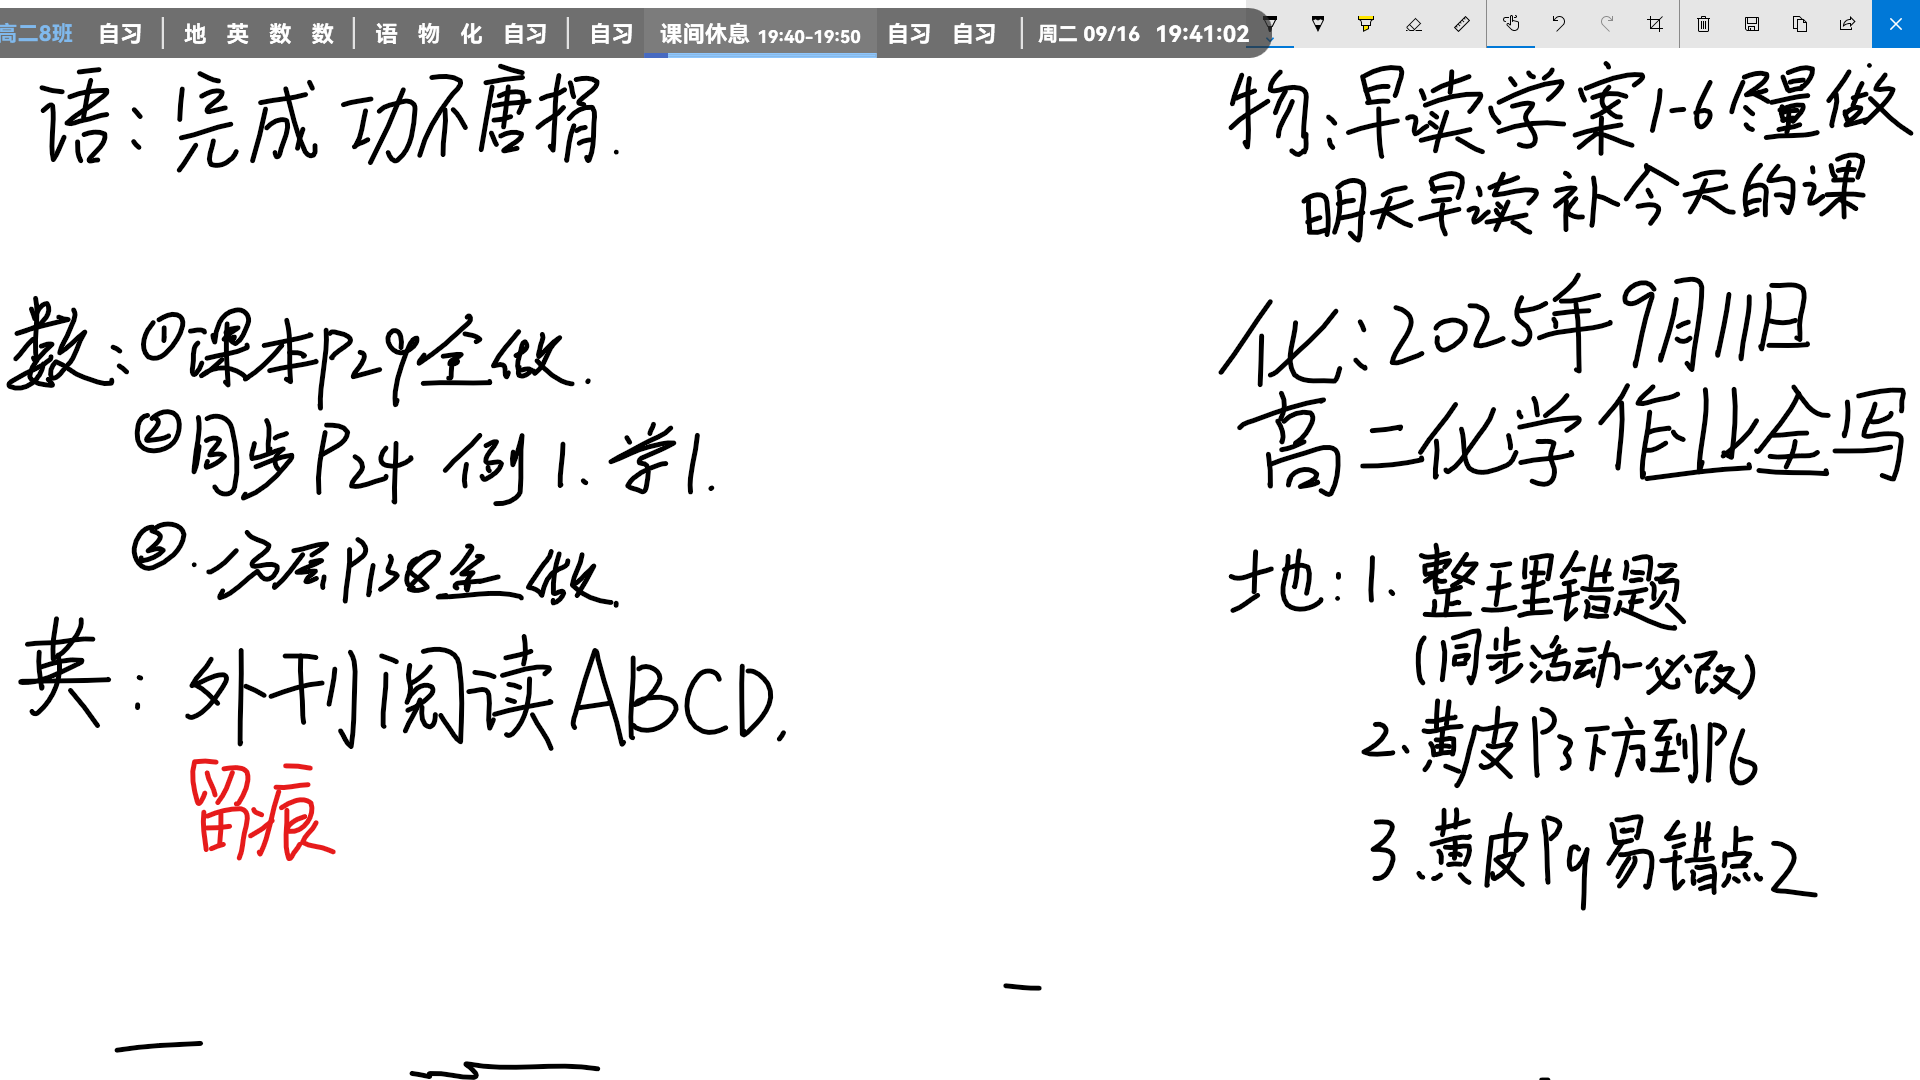 高二8班 自习 | 地 英 数 数 | 语 物 化 自习 | 自习 课间休息 19:40-19:50 自习 自习 | 周二 09/16 19:41:02
语：完成功不唐捐.
数：①课本P29全做.
②同步P24 例1、学1.
③.分层P138全做.
英：外刊阅读ABCD.
留痕
物：早读学案1-6尽量做
明天早读补今天的课
化：2025年9月11日
高二化学作业全写
地：1. 整理错题
(同步活动一必改)
2.黄皮P3下方到P6
3.黄皮P9易错点2